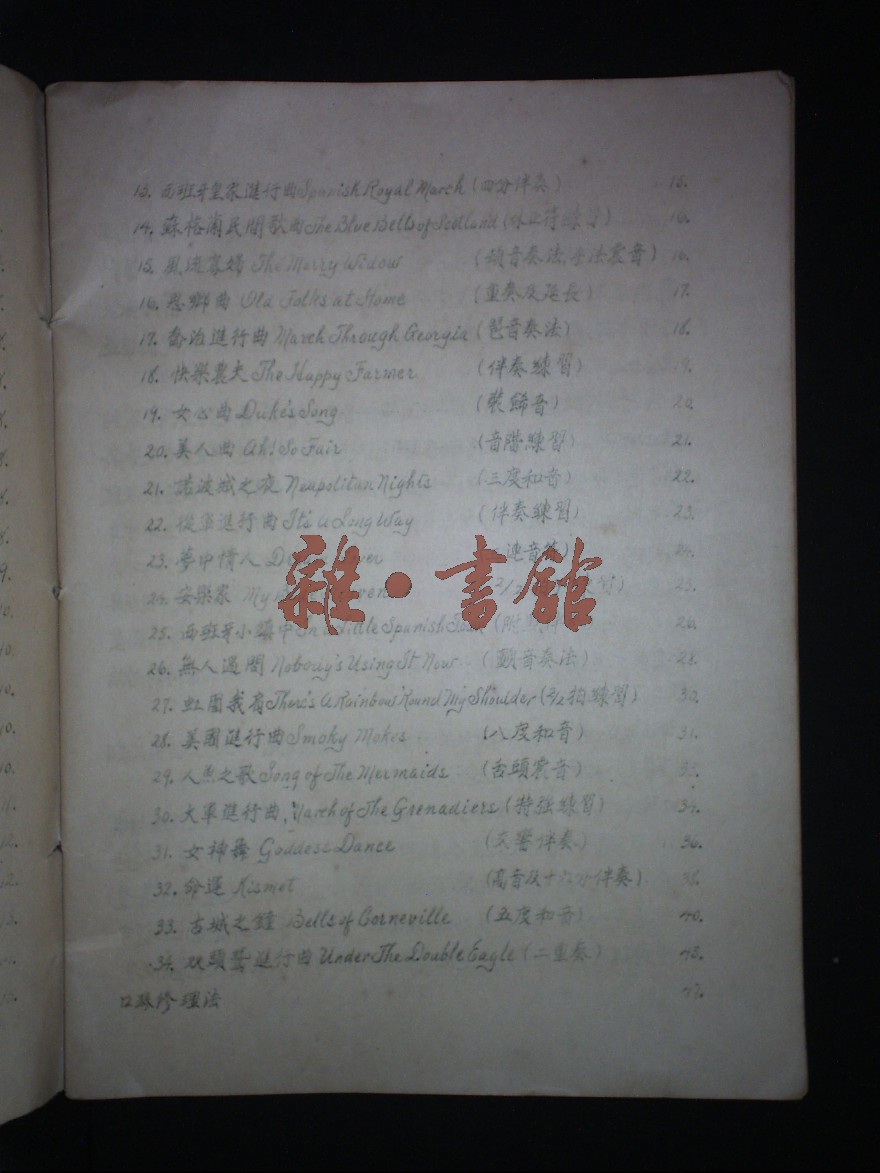 13. 西班牙皇家進行曲 Spanish Royal March (四分伴奏) 15.
14. 蘇格蘭民間歌曲 The Blue Bells of Scotland (休止符練習)
15. 風流寡婦 The Merry Widow (頓音奏法,手法震音) 16.
16. 思鄉曲 Old Folks at Home (重奏及延長) 17.
17. 喬治進行曲 March Through Georgia (琶音奏法) 18.
18. 快樂農夫 The Happy Farmer (伴奏練習) 19.
19. 女心曲 Duke's Song (裝飾音) 20.
20. 美人曲 Ah! So Fair (音階練習) 21.
21. 諾波城之夜 Neapolitan Nights (三度和音) 22.
22. 從軍進行曲 It's A Long Way (伴奏練習) 23.
23. 夢中情人 24.
24. 安樂家 My 25.
25. 西班牙小鎮中 In A Little Spanish Town 26.
26. 無人過問 Nobody's Using It Now (顫音奏法) 28.
27. 虹圍我肩 There's A Rainbow 'Round My Shoulder (2/2 拍練習) 30.
28. 美國進行曲 Smoky Mokes (八度和音) 31.
29. 人魚之歌 Song of The Mermaids (舌頭震音) 33.
30. 大軍進行曲 March of The Grenadiers (特強練習) 34.
31. 女神舞 Goddess Dance (交響伴奏) 36.
32. 命運 Kismet (高音及十六分伴奏) 38.
33. 古城之鐘 Bells of Corneville (五度和音) 40.
34. 双頭鷲進行曲 Under The Double Eagle (二重奏) 43.
口琴修理法 47.
雜·書館